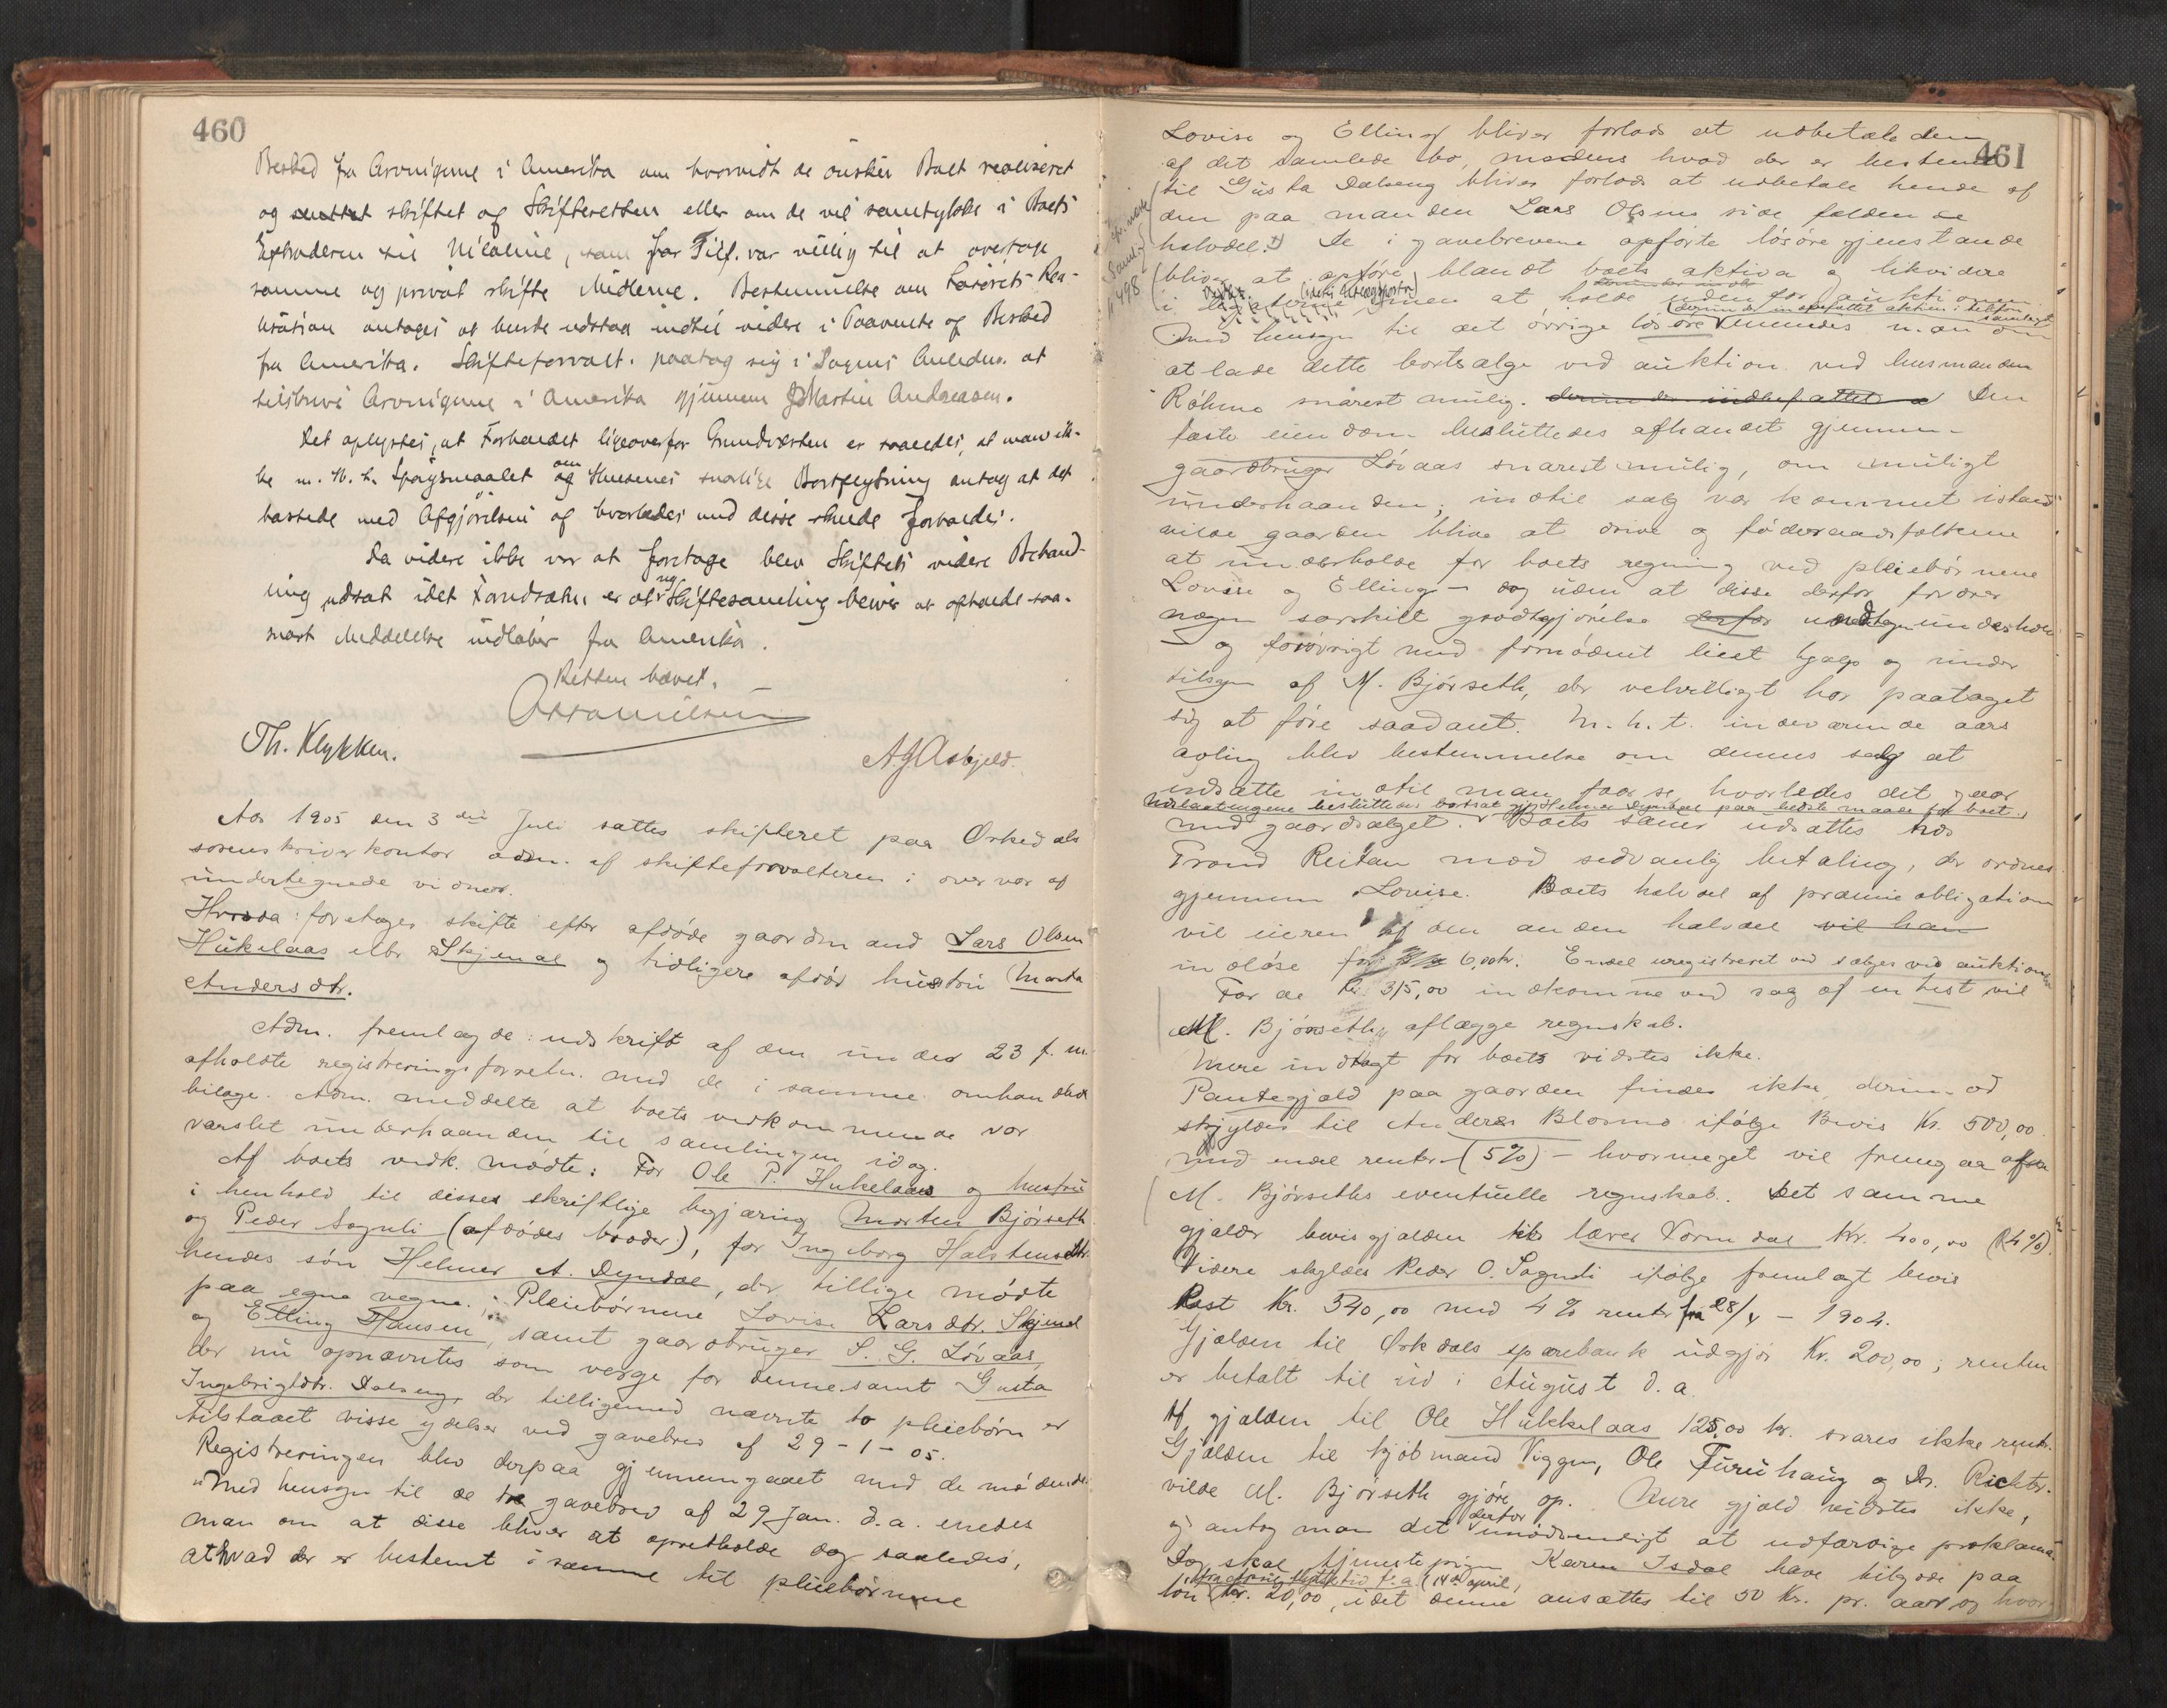 460
Besked fra Arvingerne i Amerika om hvorvidt de ønsker Boet realiseret
og skiftet af Skifteretten eller om de vil samtykke i Boets
Extradern til Nicoline, som for Tilf. var villig til at overtage
samme og privat skifte Midlerne. Bestemmelse om Løsørets Rea-
lisation antages at burde udstaa indtil videre i Paavente af Besked
fra Amerika. Skifteforvalt. paatog sig i Sagens Anledn. at
tilskrive Arvingerne i Amerika gjennem Martin Andreasen.
Det oplystes, at Forholdet ligeoverfor Grundværten er saaledes, at man ik-
ke m. H. t. Spørgsmaalet om Husenes snarlige Bortflytning antog at det
hastede med Afgjørelsen af hvorledes med disse skulde forholdes.
Da videre ikke var at foretage blev Skiftets videre Behand-
ling udsat idet Forudsætn. er at ny Skiftesamling bliver at afholde saa-
snart Meddelelse indløber fra Amerika.
Retten hævet.
Th. Klykken.
A. J. Asbjeld.
Aar 1905 den 3die Juli sattes skifteret paa Orkedals
sorenskriverkontor adm. af skifteforvalteren i overvær af
undertegnede vidner.
Hvorda: foretages skifte efter afdøde gaardmand Lars Olsen
Hukelaas eller Skjenal og tidligere afdød hustru Marta
Andersdtr.
Adm. fremlagde: udskrift af den under 23 f. m.
afholdte registreringsforretn. med de i samme omhandlede
bilage. Adm. meddelte at boets vedkommende var
varslet underhaanden til samlingen idag.
Af boets vedk. mødte: For Ole P. Hukelaas og hustru
i henhold til disses skriftlige begjæring Morten Bjørseth
og Peder Sognli (afdødes broder), for Ingeborg Halstensdtr.
hendes søn Helmer A. Dyndal, der tillige mødte
paa egne vegne. Pleiebørnene Lovise Larsdtr. Skjenal
og Elling Hansen, samt gaardbruger S. G. Løvaas,
der nu opnævntes som verge for denne samt Gusta
Ingebrigtdtr. Dalseng, der tilligemed nævnte to pleiebørn er
tilstaaet visse ydelser ved gavebrev af 29-1-05.
Registreringen blev derpaa gjennemgaaet med de mødende.
Med hensyn til de gavebrev af 29 Jan. d.a. enedes
man om at disse bliver at opretholde dog saaledes,
at hvad der er bestemt i samme til pleiebørnene
461
Lovise og Elling bliver forlods at udbetale dem
af det samlede bo, medens hvad der er bestemt
til Gusta Dalseng bliver forlods at udbetale hende af
den paa manden Lars Olsens side faldende
halvdel. De i gavebrevene opførte løsøregjenstande
bliver at opføre blandt boets aktiva og likvidere
i at holde udenfor auktionen
Med hensyn til det øvrige løsøre enedes man om
at lade dette bortsælge ved auktion ved husmanden
Røhmo snarest mulig. derunder indbefattet Den
faste eiendom besluttedes afhændet gjennem
gaardbruger Løvaas snarest mulig, om muligt
underhaanden; indtil salg var kommet istand
vilde gaarden blive at drive og føderaadsfolkene
at underholde for boets regning ved pleiebørnene
Lovise og Elling – dog uden at disse derfor fordrer
nogen særskilt godtgjørelse derfor undtagen underhold
og forøvrigt med fornødent leiet hjælp og under
tilsyn af M. Bjørseth, der velvilligt har paataget
sig at føre saadant. M. h. t. indeværende aars
avling blev bestemmelse om dennes salg at
udsætte indtil man faar se hvorledes det gaar
med gaardsalget. Boets sauer udsættes hos
Trond Reitan mod sedvanlig betaling, der ordnes
gjennem Lovise. Boets halvdel af præmieobligation
vil eieren af den anden halvdel vil han
indløse for 6,00 kr. Endel uregistreret ved sælges ved auktionen
For de Kr. 315,00 indkomne ved salg af en hest vil
M. Bjørseth aflægge regnskab.
Mere indtægt for boets vidstes ikke.
Pantegjæld paa gaarden findes ikke, derimod
skyldes til Anders Blosmo ifølge Bevis Kr. 500,00
med endel renter (5%) – hvormeget vil fremgaa af
M. Bjørseths eventuelle regnskab. Det samme
gjælder bevisgjælden til lærer Vormdal Kr. 400,00 (4%).
Videre skyldes Peder O. Sognli ifølge fremlagt bevis
Rest Kr. 540,00 med 4% renter fra 28/4 – 1904.
Gjælden til Orkdals sparebank udgjør Kr. 200,00; renten
er betalt til ud i August d.a.
Af gjælden til Ole Hukkelaas 125,00 kr. svares ikke rente.
Gjælden til kjøbmand Viggen, Ole Furuhaug og Dr. Richter
vilde M. Bjørseth gjøre op. Mere gjæld vidstes ikke,
og antog man det derfor unødvendigt at udfærdige proklama.
Dog skal tjenestepigen Karen Isdal have tilgode paa
løn Kr. 20,00, idet denne ansættes til 50 Kr. pr. aar og hvor